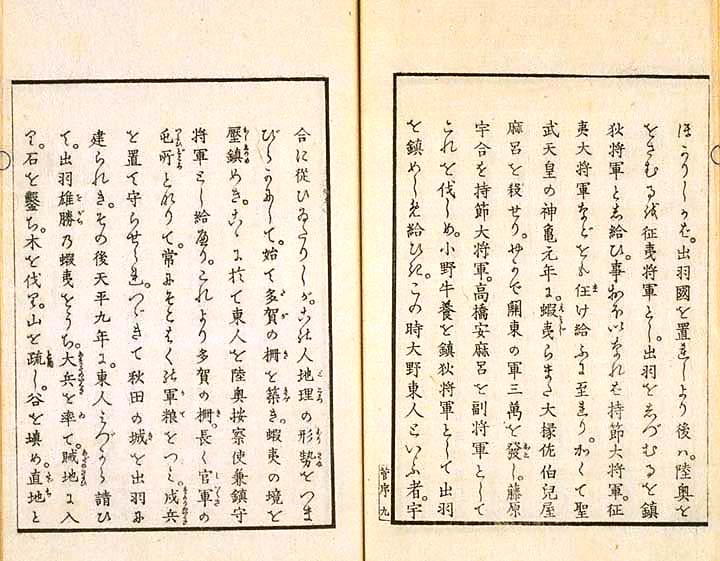 ほかりしかば。出羽國を置れしより後ハ。陸奥を
をさむるを征夷将軍とし。出羽をしづむるを鎮
狄将軍とし給ひ。事おほいなれば持節大将軍。征
夷大将軍などをも任け給ふに至れり。かくて聖
武天皇の神亀元年に。蝦夷らまた大掾佐伯兒屋
麻呂を殺せり。やがて關東の軍三萬を發し。藤原
宇合を持節大将軍。高橋安麻呂を副将軍として
これを伐しめ。小野牛養を鎮狄将軍として出羽
を鎮めしめ給ひき。この時大野東人といふ者。宇
菅序 九
合に從ひたりしが。これ人地理の形勢をつま
びらかにして。始て多賀の柵を築き。蝦夷の境を
壓鎮めき。こゝに於て東人を陸奥按察使兼鎮守
将軍とし給へり。これより多賀の柵。長く官軍の
屯所となりて。常に軍粮をつミ。戍兵
を置て守らせられ。つゞきて秋田の城を出羽に
建られき。その後天平九年に。東人みづから請ひ
て。出羽雄勝乃蝦夷をうち。大兵を率て。賊地に入
り。石を鑿ち。木を伐り。山を疏し。谷を填め。直地と